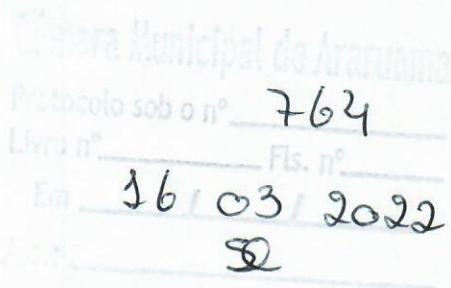 Câmara Municipal de Araruama
Protocolo sob o nº 764
Livro nº Fls. nº
Em 16 / 03 / 2022